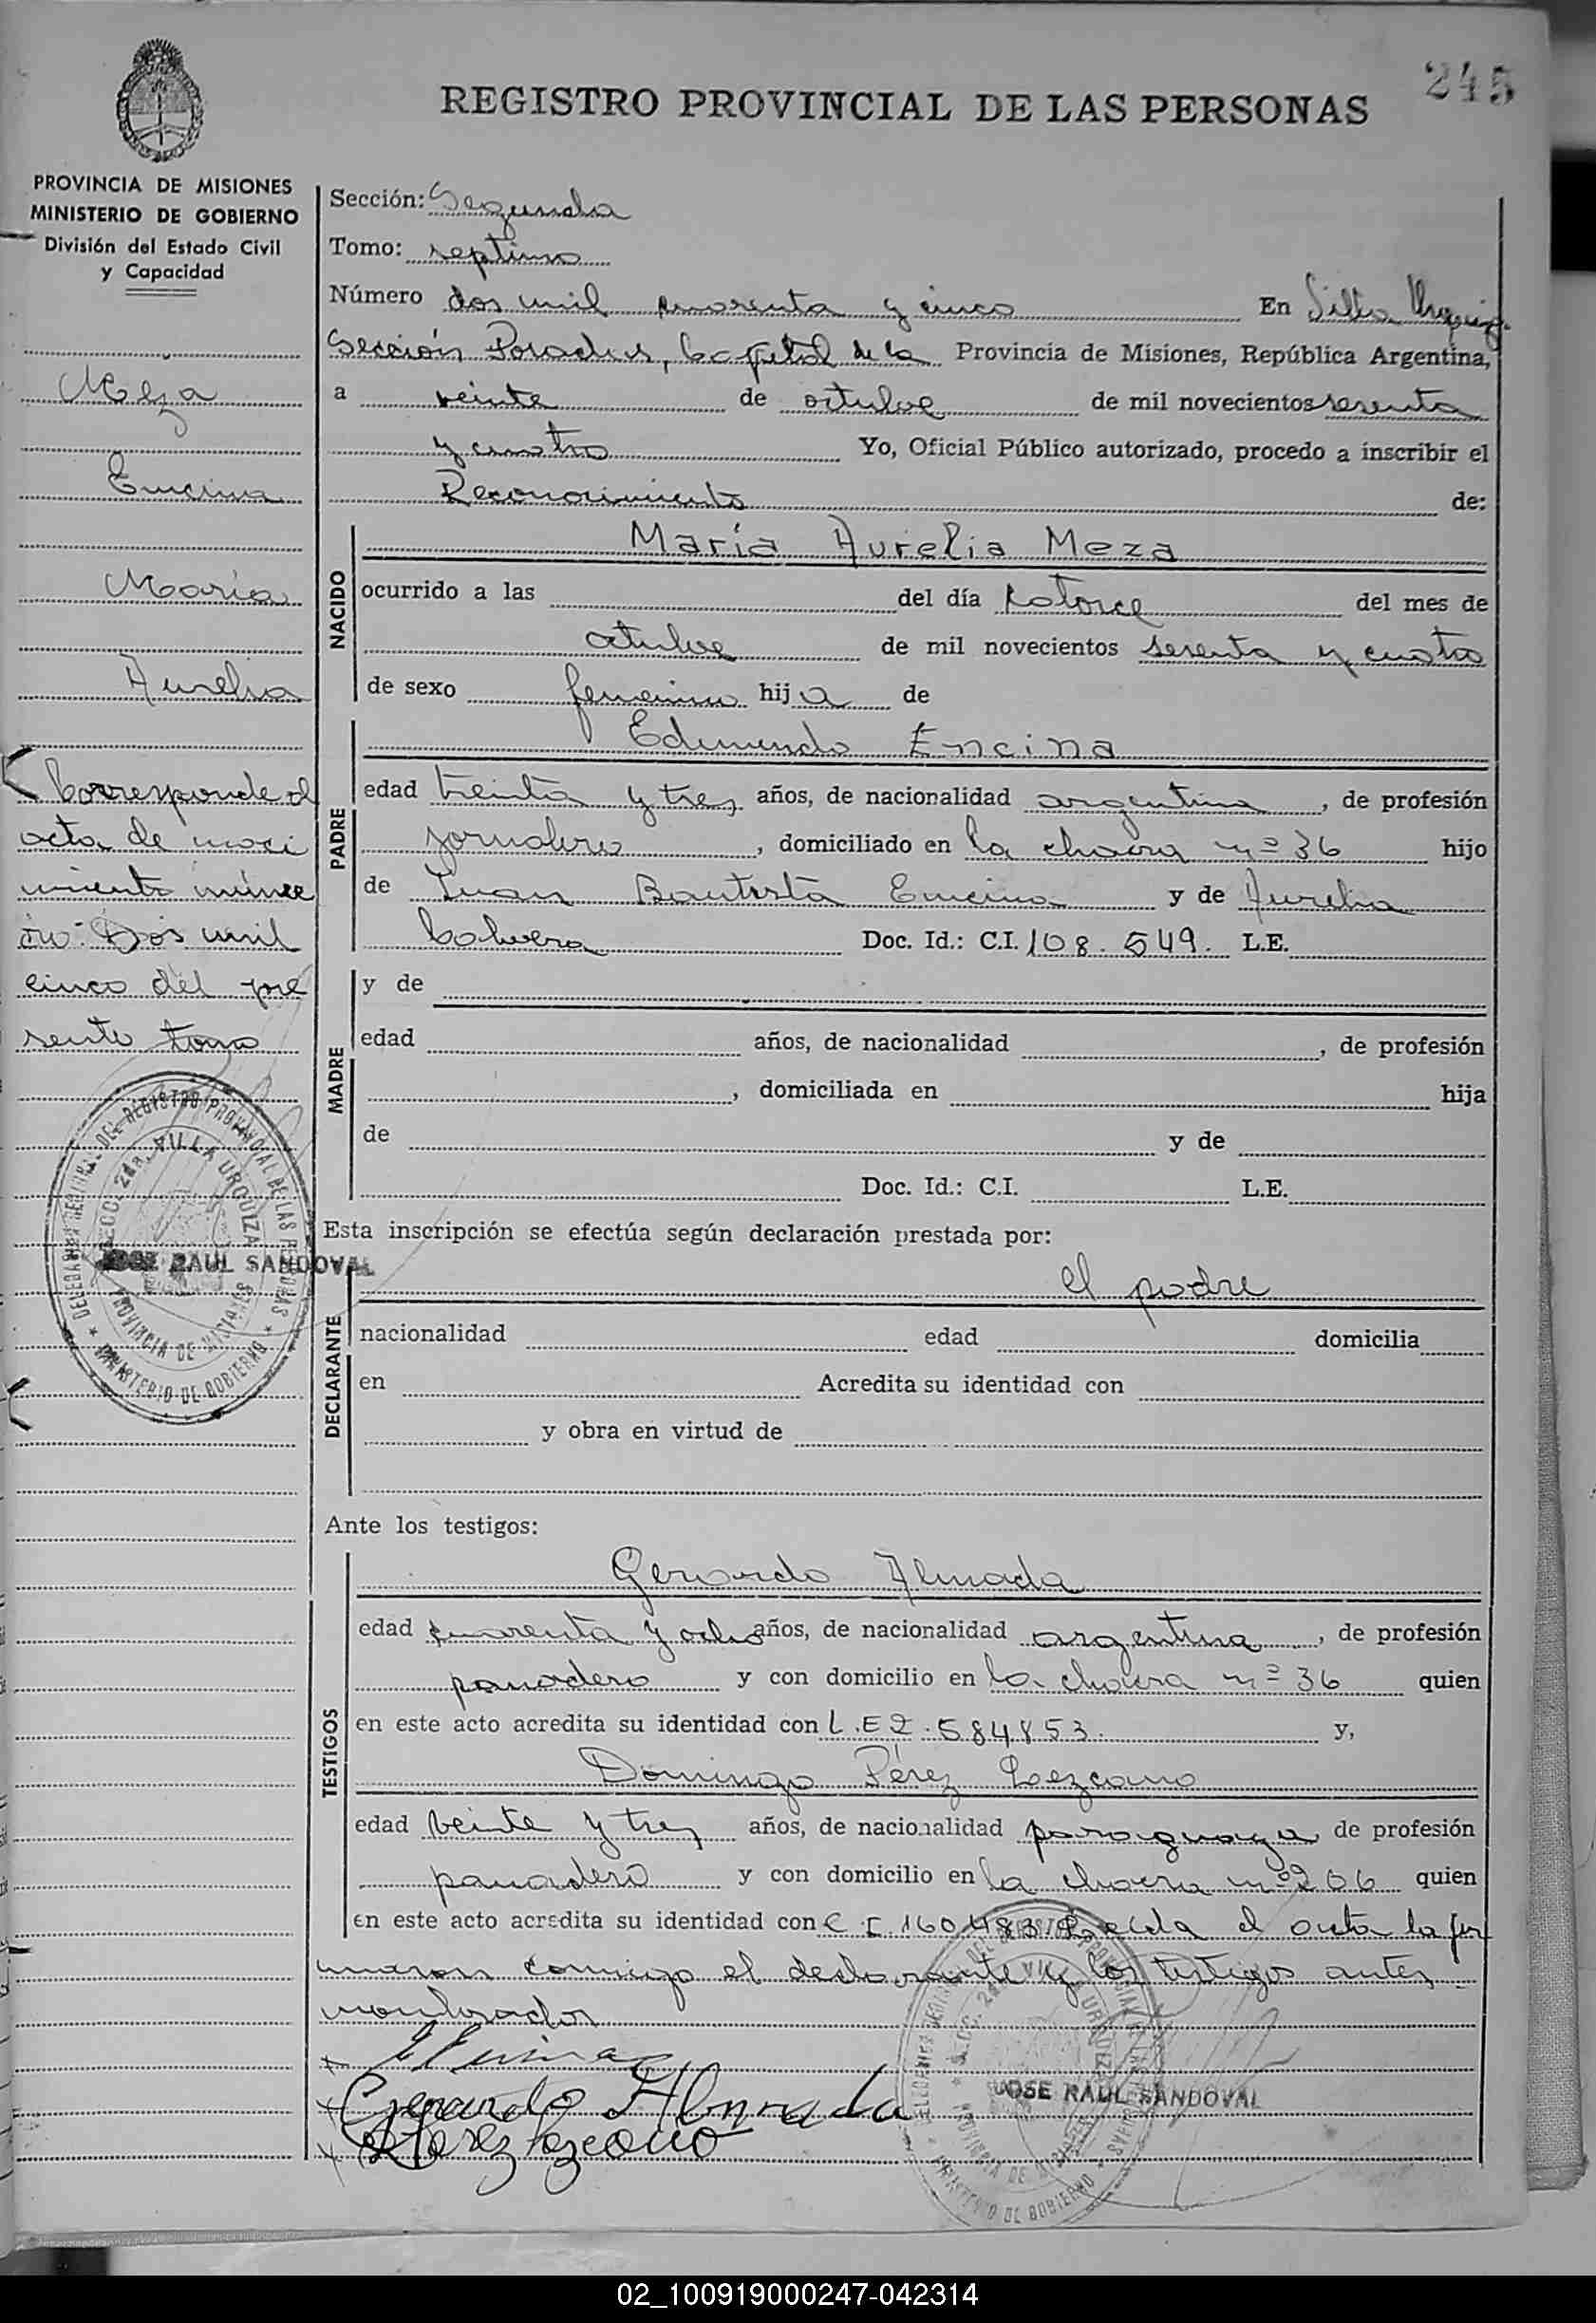 245
REGISTRO PROVINCIAL DE LAS PERSONAS
PROVINCIA DE MISIONES
MINISTERIO DE GOBIERNO
División del Estado Civil
y Capacidad
Meza
Encina
María
Aurelia
Corresponde al
acta de naci
miento núme
ro: Dos mil
cinco del pre
sente tomo
DELEGACION REGIONAL DEL REGISTRO PROVINCIAL DE LAS PERSONAS
SECC. 2da. VILLA URQUIZA
PROVINCIA DE MISIONES
MINISTERIO DE GOBIERNO
JOSE RAUL SANDOVAL
Sección: Segunda
Tomo: septimo
Número dos mil cuarenta y cinco En Villa Urquiza
Sección Posadas, Capital de la Provincia de Misiones, República Argentina,
a veinte de octubre de mil novecientos sesenta
y cuatro Yo, Oficial Público autorizado, procedo a inscribir el
Reconocimiento de:
NACIDO
María Aurelia Meza
ocurrido a las del día catorce del mes de
octubre de mil novecientos sesenta y cuatro
de sexo femenino hija de
PADRE
Edmundo Encina
edad treinta y tres años, de nacionalidad argentina, de profesión
jornalero, domiciliado en la chacra nº 36 hijo
de Juan Bautista Encina y de Aurelia
Doc. Id.: C.I. 108.549. L.E.
MADRE
y de
edad años, de nacionalidad , de profesión
, domiciliada en hija
de y de
Doc. Id.: C.I. L.E.
Esta inscripción se efectúa según declaración prestada por:
DECLARANTE
el padre
nacionalidad edad domicilia
en Acredita su identidad con
y obra en virtud de
Ante los testigos:
TESTIGOS
Gerardo Almada
edad cuarenta y ocho años, de nacionalidad argentina, de profesión
panadero y con domicilio en la chacra nº 36 quien
en este acto acredita su identidad con L.E 2.584853. y,
Domingo Pérez Lezcano
edad veinte y tres años, de nacionalidad paraguaya de profesión
panadero y con domicilio en la chacra nº 206 quien
en este acto acredita su identidad con C.I. 160.483. Leída el acta la fir
maron conmigo el declarante y los testigos antes
nombrados
Gerardo Almada
Perez Lezcano
DELEGACION REGIONAL DEL REGISTRO PROVINCIAL DE LAS PERSONAS
SECC. 2da. VILLA URQUIZA
PROVINCIA DE MISIONES
MINISTERIO DE GOBIERNO
JOSE RAUL SANDOVAL
02_100919000247-042314